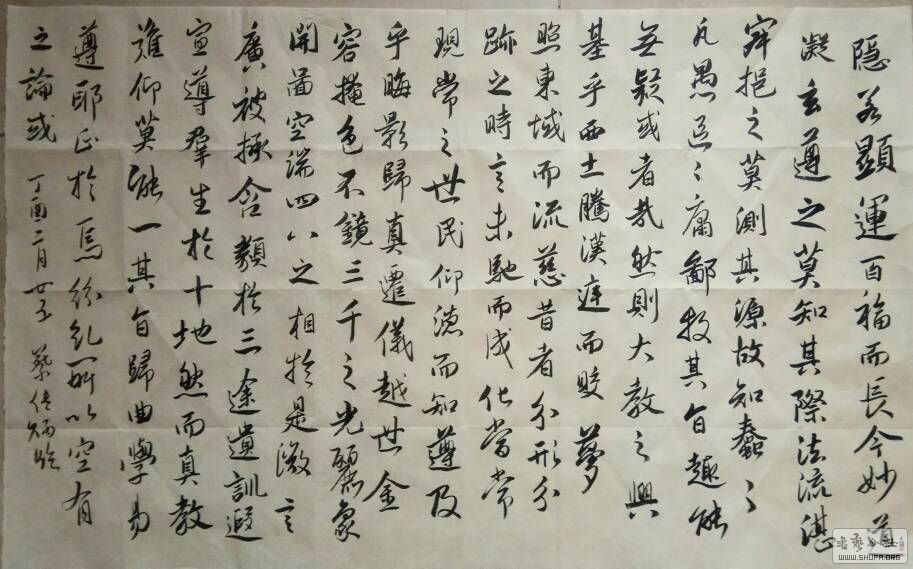 隐若顯運百福而長今妙道
凝玄遵之莫知其際法流湛
寂挹之莫測其源故知蠢〻
凡愚區〻庸鄙投其旨趣能
無疑或者哉然則大教之興
基乎西土騰漢庭而皎夢
照東域而流慈昔者分形分
跡之時言未馳而成化當常
現常之世民仰德而知遵及
乎晦影歸真遷儀越世金
容掩色不鏡三千之光麗象
開圖空端四八之相於是微言
廣被拯含類於三途遺訓遐
宣導群生於十地然而真教
難仰莫能一其旨歸曲學易
遵耶正於焉紛糺所以空有
之論或 丁酉二月廿 蔡 炳臨
WWW.SHUFA.ORG